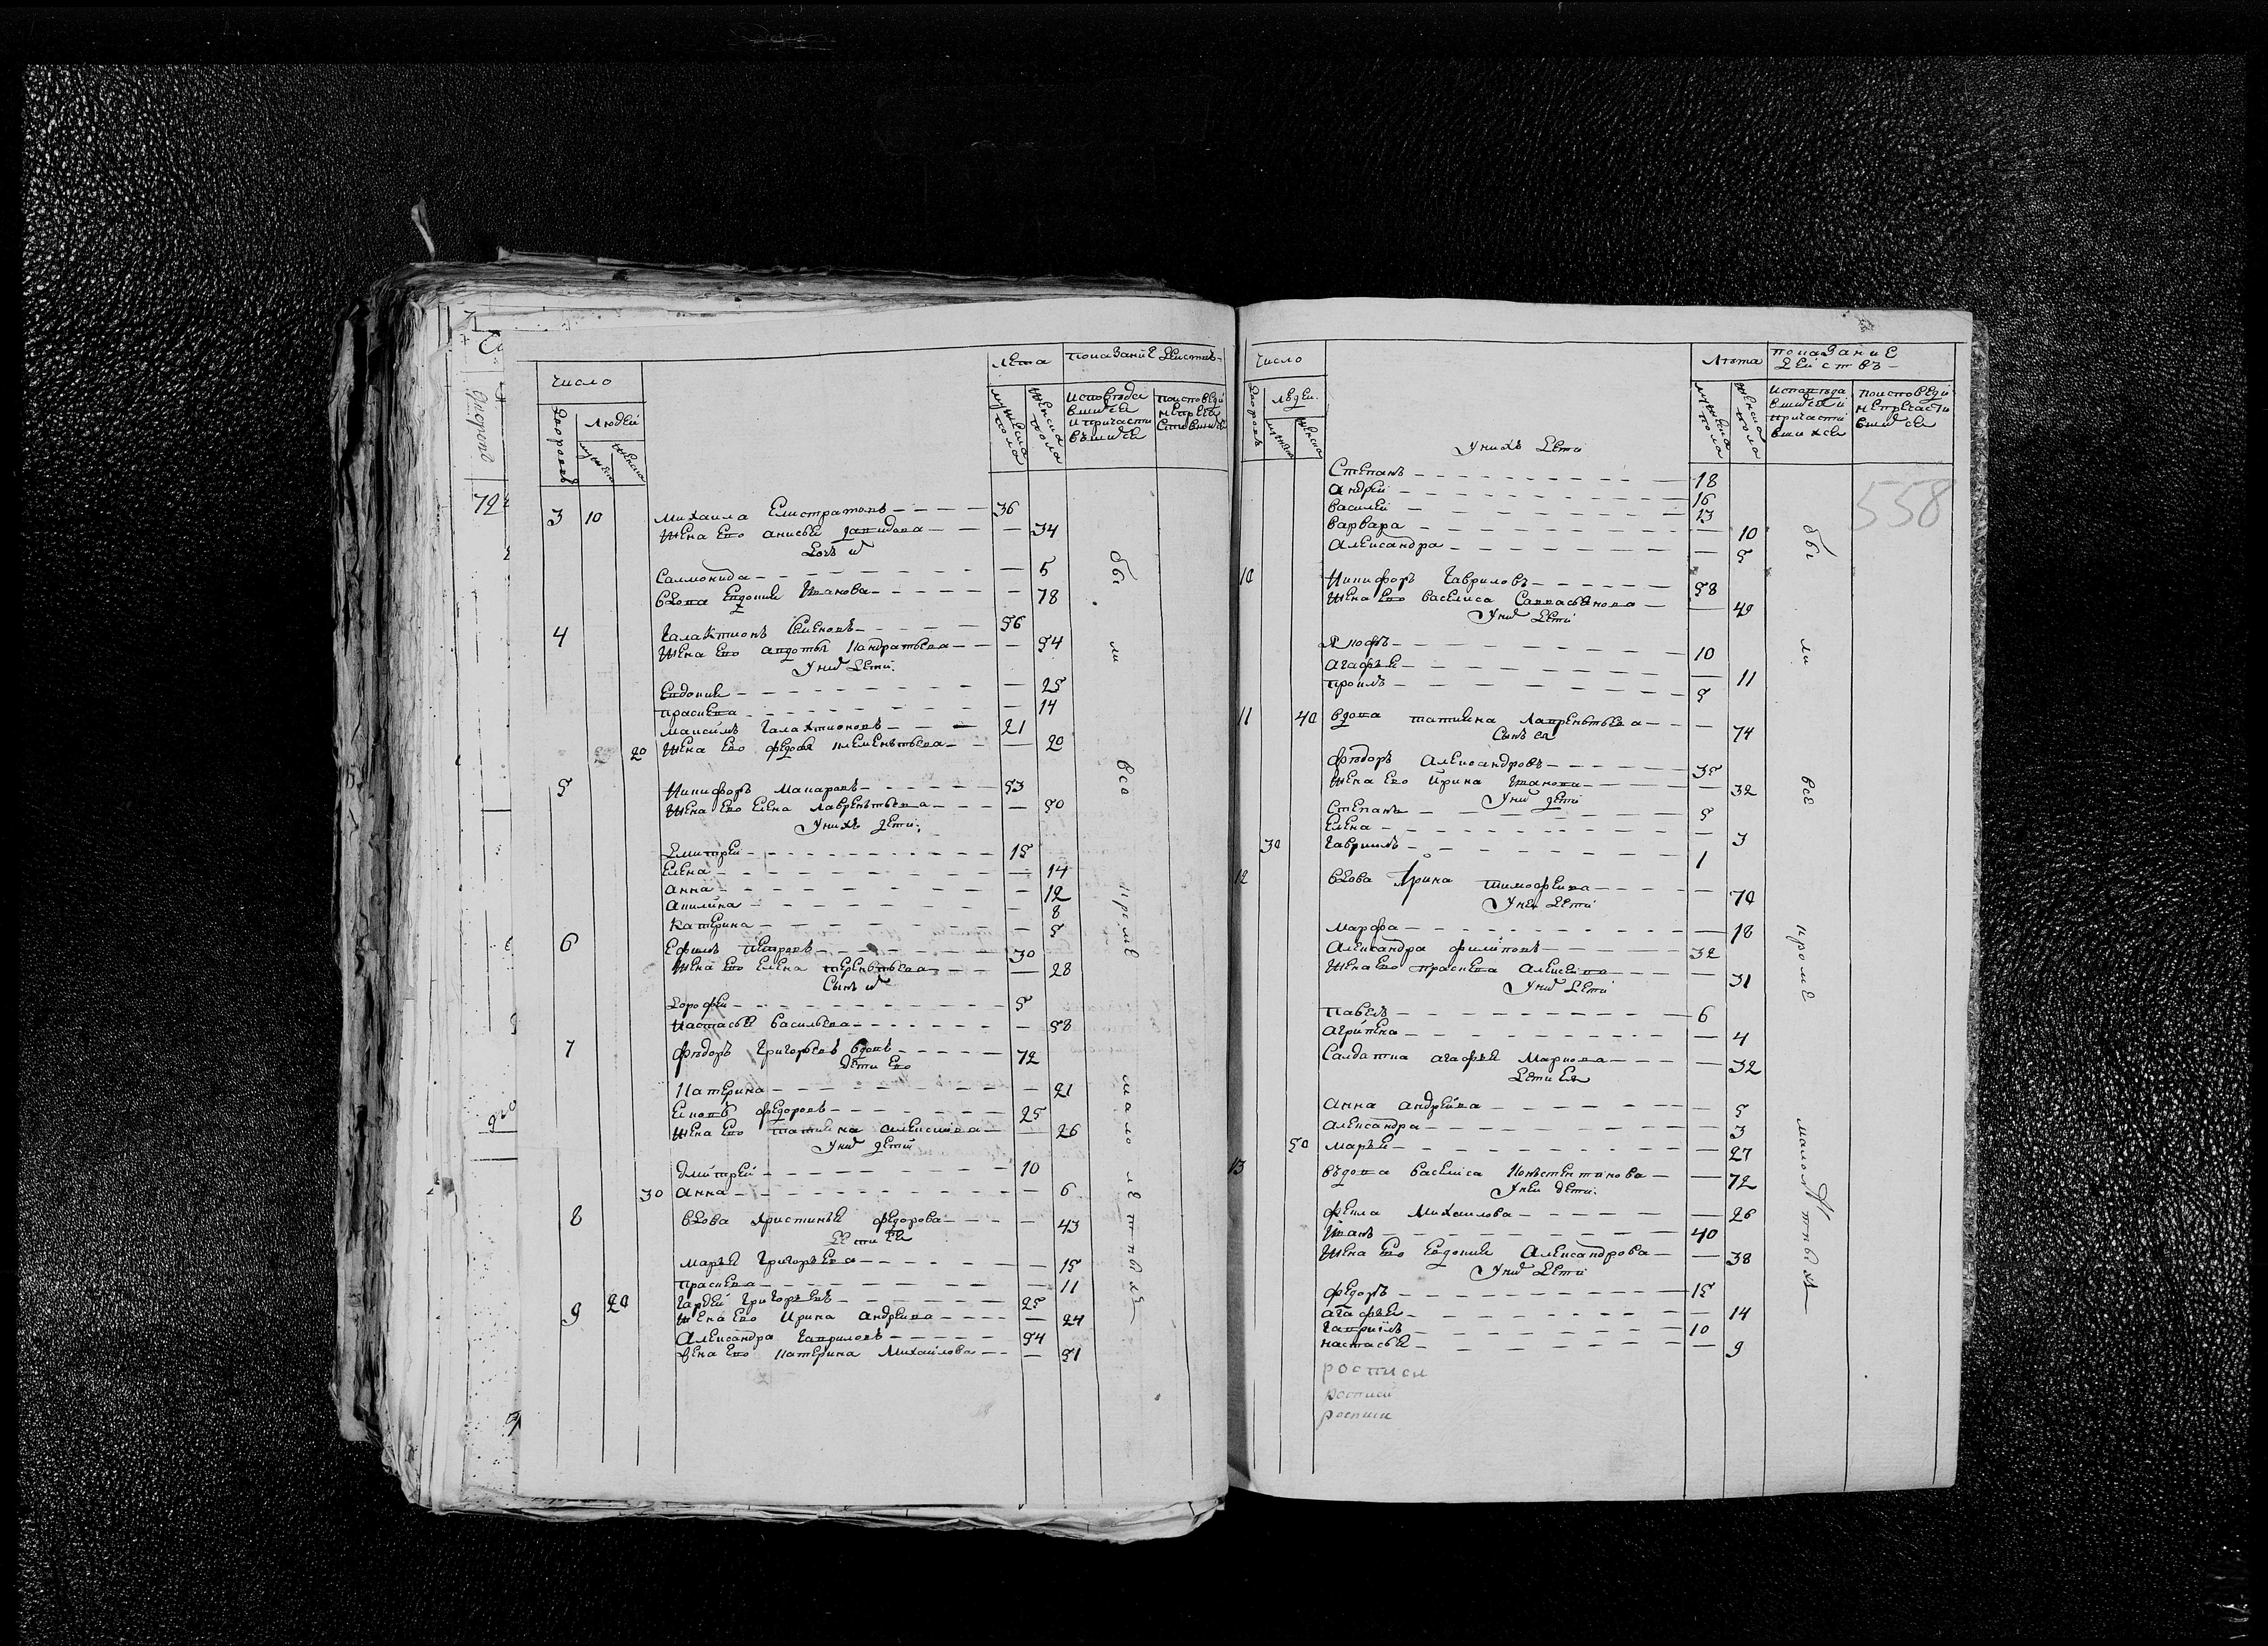 Число
Лета
показание деиствъ
Дворовъ
Людей
мужеска
женска
мужеска пола
женска пола
исповѣда
вшихся
и причасти
вшихся
3 10 михаила Елистратовъ 36
жена Ево анисья давидова 34
дочь их
Саломонида 5
вдова Евдокия Иванова 78
4 Галактионъ Семеновъ 56
жена Ево авдотья Кондратьева 54
У них дети
Евдокия 25
прасковя 14
максимъ Галактионовъ 21
20 жена Ево федося клементьева 20
5 Никифоръ Макаровъ 53
жена Ево Елена лаврентьева 50
У нихъ дети
Дмитрей 15
Елена 14
анна 12
акилина 8
Катерина 5
6 Ефимъ петровъ 30
жена Ево Елена терентьева 28
Сынъ их
дорофеи 5
Настасья васильева 58
7 Фѣдоръ Григорьевъ вдовъ 72
Дети Ево
Катерина 21
федоровъ 25
жена Ево татияна алексиева 26
У них дети
дмитрей 10
30 анна 6
8 вдова Христинья федорова 43
дети Ея
марья Григорьева 15
прасковя 11
20 Гордей Григорьевъ 25
9 жена Ево Ирина андреива 24
Александра Гавриловъ 54
жена Ево Катерина Михайлова 51
обы
ли
все
кроме
мало
летныхъ
Число
Лѣта
показание
деиствъ
Дворовъ
людеи
мужеска пола
женска пола
исповѣда
вшихся и
причасти
вшихся
поисповеди
непричасти
вшихся
558
У нихъ дети
Степанъ 18
андрей 16
василей 13
варвара 10
Александра 5
10 Никифоръ Гавриловъ 58
жена Ево василиса 40
У них дети
10
агафья 11
5
11 40 вдова татияна лаврентьева 74
Сынъ ея
Фѣдоръ Александровъ 35
жена Ево Ирина Иванова 32
У них дети
Степанъ 5
Елена 3
30 Гавриилъ 1
12 вдова Ирина тимофеива 70
У нея дети
марфа 18
Александра филиповъ 32
жена Ево прасковя Алексеива 31
У них дети
павелъ 6
агрипена 4
Салдатка агафья Маркова 32
Дети Ея
Анна андреива 5
Александра 3
50 марья 27
13 въдова василиса Конъстентинова 72
У неи дети
фекла Михаилова 26
Иванъ 40
жена Ево Евдокия Александрова 38
У них дети
федоръ 15
агафья 14
Гавриилъ 10
настасья 9
росписи
росписи
росписи
обы
ли
все
кроме
малолѣтныхъ